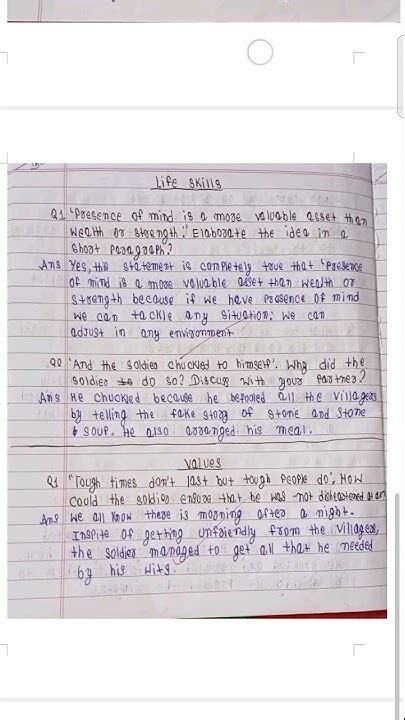 Life Skills
Q1 'Presence of mind is a more valuable asset than
wealth or strength.' Elaborate the idea in a
short paragraph?
Ans Yes, this statement is completely true that 'Presence
of mind is a more valuable asset than wealth or
strength because if we have presence of mind
we can tackle any situation. we can
adjust in any environment
Q2 'And the soldier chuckled to himself'. Why did the
soldier do so? Discuss with your partner?
Ans He chucked because he befooled all the villagers
by telling the fake story of stone and stone
soup. He also arranged his meal.
Values
Q1 "Tough times don't last but tough people do'. How
could the soldier ensure that he was not disheartened at all
Ans We all know there is morning after a night.
Inspite of getting unfriendly from the villagers,
the soldier managed to get all that he needed
by his wits.